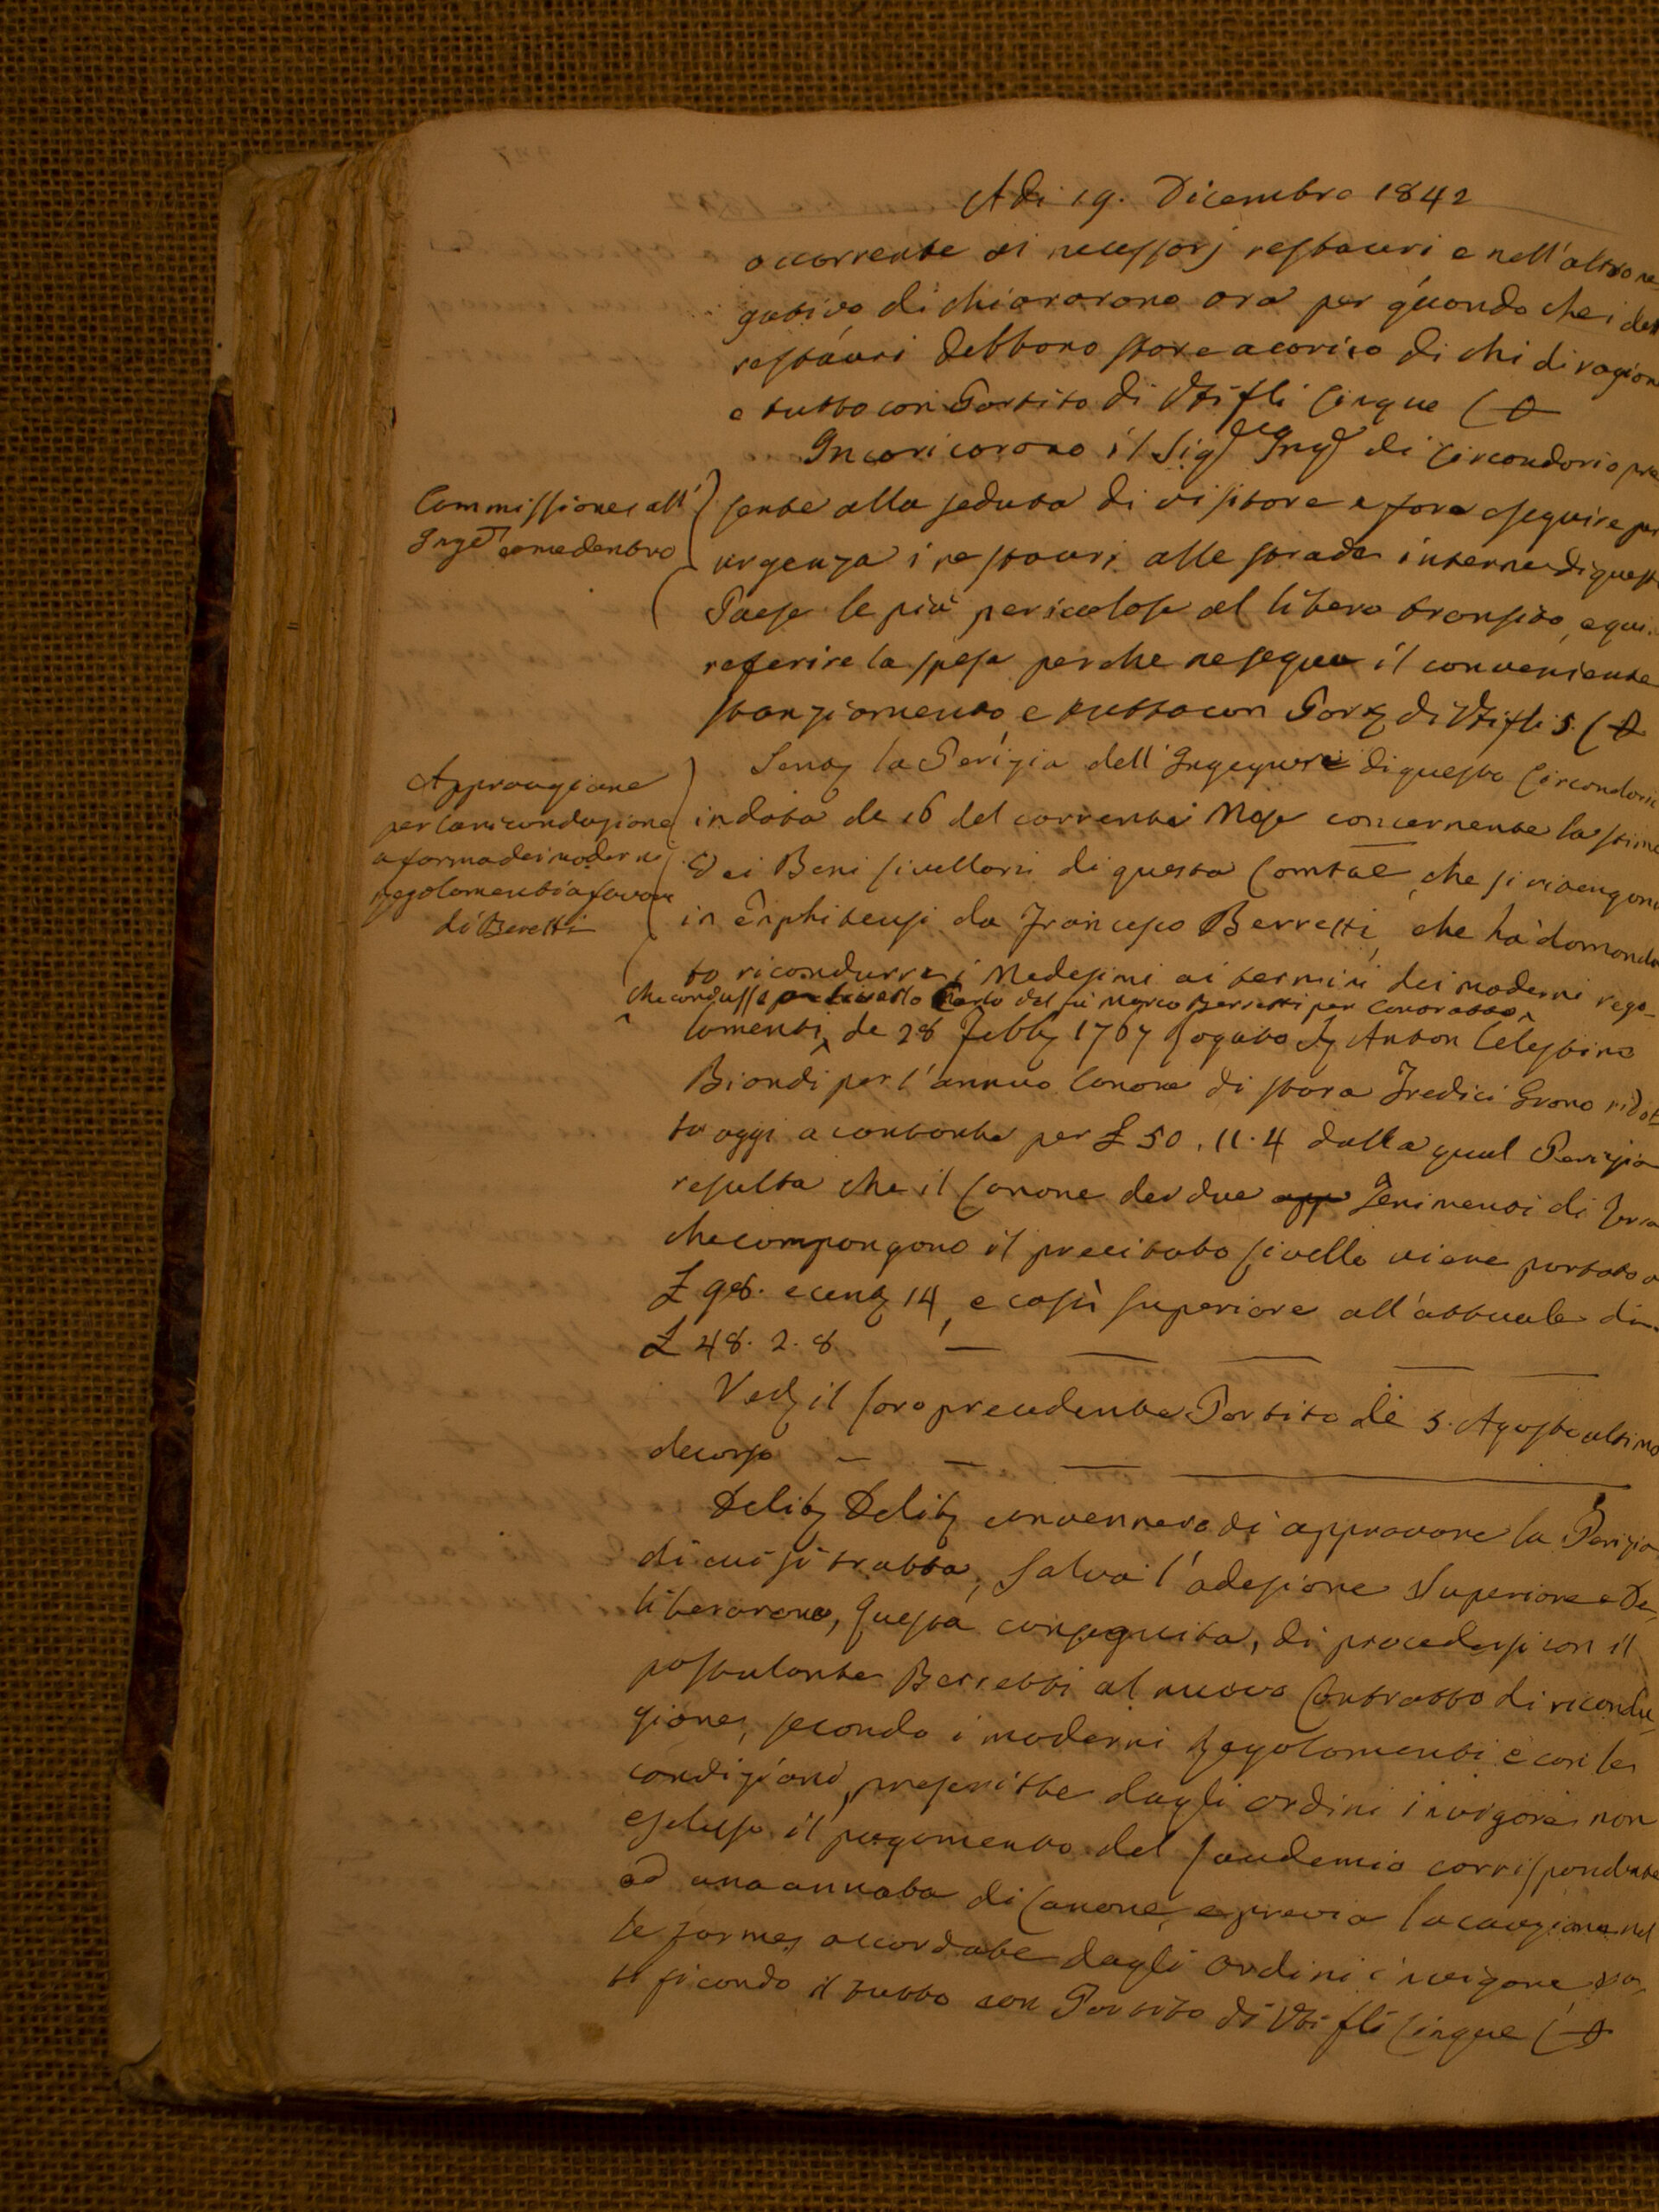 Adi 19. Dicembre 1842
occorrente ai necessarj restauri e nell'altro ne
gativo dichiararono ora per quando che i det
restauri debbano stare a carico di chi di ragione
e tutto con Partito di Vti fli Cinque
Incaricarono il Sigr Ingr di Circondario pre
Commissione all'
Inge come dentro
sente alla seduta di visitare e fare eseguire per
urgenza i restauri alle strade interne di questo
Paese le più pericolose al libero transito, e qui
referire la spesa perche ne segua il conveniente
stanziamento, e tutto con Part di Vti fli 5.
Approvazione
per la riconduzione
a forma dei moderni
regolamenti a favore
di Beretti
Sentq la Perizia dell'Ingegnere di questo Circondario
in data de 16 del corrente Mese concernente la stima
dei Beni livellari di questa Comtàe che si ritengono
in Emphiteusi da Francesco Berretti, che ha domanda
to ricondurre i Medesimi ai termini dei moderni rego-
che condusse a livello Carlo del fù Marco Berretti per Contratto
lamenti, de 28 Febb 1767 Rogato Anton Celestino
Biondi per l'annuo Canone di stara Tredici Grano ridot
to oggi a contante per £ 50. 11. 4 dalla qual Perizia
resulta che il Canone dei due app Tenimenti di Terra
che compongono il precitato livello viene portato a
£ 98. e cent 14, e così superiore all'attuale di
£ 48. 2. 8
Ved il loro precedente Partito de 5. Agosto ultimo
decorso
Delib Delib convennero di approvare la Perizia
di cui si tratta, salva l'adesione Superiore e De
liberarono, questa conseguita, di procedersi con il
postulante Berretti al nuovo Contratto di ricondu
zione, secondo i moderni Regolamenti e con le
condizioni prescritte dagli ordini in vigore non
escluso il pagamento del laudemio corrispondente
ad una annata di Canone, e previa la cauzione nel
le forme accordate dagli Ordini in vigore par
tificando il tutto con Partito di Vti fli Cinque